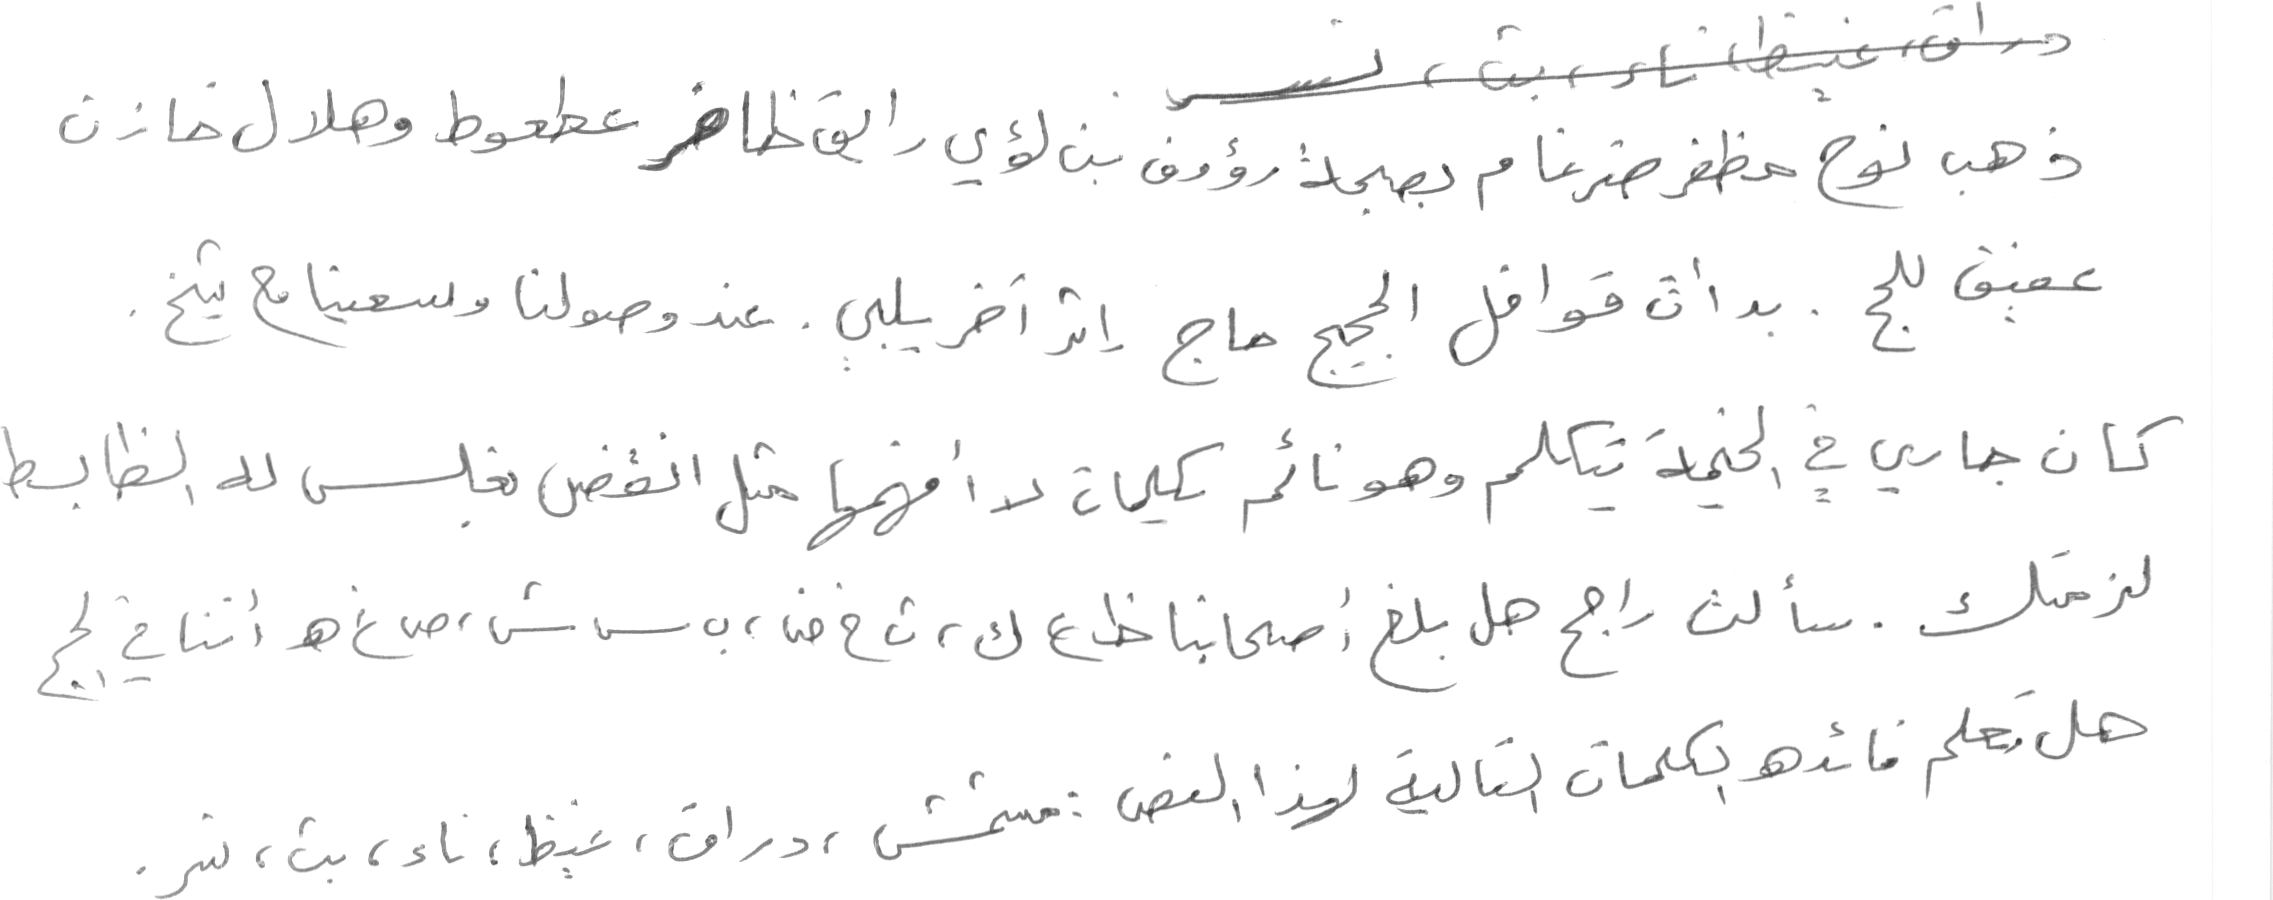 دراق، غيظ، ناء، بث، نسر
ذهب نوح مظفر ضرغام بصحبة رؤوف بن لؤي رايق ظافر عطعوط وهلال خازن
عفيق للحج . بدأت قوافل الحجيج حاج إثر آخر يلبي . عند وصولنا وسعينا مع شيخ .
كان جاري في الخيمة يتكلم وهو نائم كلمات لا أفهمها مثل انقض بغلس له الظابط
لزمتك . سألت راجح هل بلغ أصحابنا ظ ع ك ، ث خ ض ، ب س ش ، ص غ هـ أننا في الحج
هل تعلم فائده الكلمات التالية لهذا النص : مشمش ، دراق ، غيظ ، ناء ، بث ، نثر .